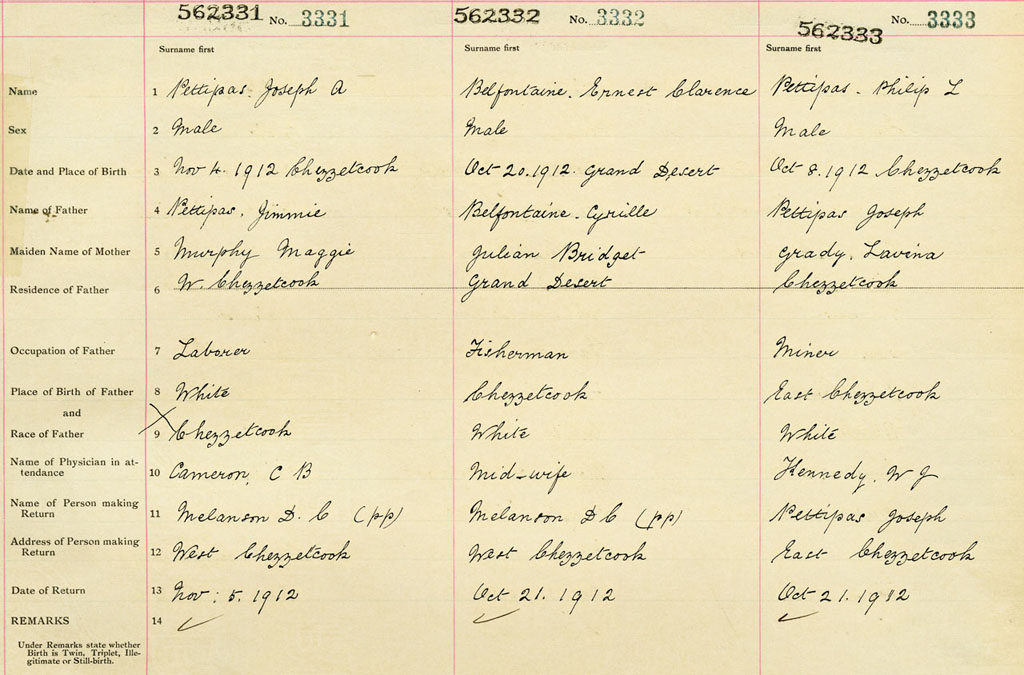 562331 No. 3331 562332 No. 3332 562333 No. 3333
Surname first Surname first Surname first
Name 1 Pettipas. Joseph A Belfontaine. Ernest Clarence Pettipas. Philip L
Sex 2 Male Male Male
Date and Place of Birth 3 Nov 4. 1912 Chezzetcook Oct 20. 1912. Grand Desert Oct 8. 1912 Chezzetcook
Name of Father 4 Pettipas. Jimmie Belfontaine. Cyrille Pettipas Joseph
Maiden Name of Mother 5 Murphy Maggie Julian Bridget Grady. Lavina
Residence of Father 6 W. Chezzetcook Grand Desert Chezzetcook
Occupation of Father 7 Laborer Fisherman Miner
Place of Birth of Father 8 White Chezzetcook East Chezzetcook
and
Race of Father 9 Chezzetcook White White
Name of Physician in at-
tendance 10 Cameron, C B Mid-wife Kennedy. W J
Name of Person making
Return 11 Melanson D. C (pp) Melanson D C (pp) Pettipas Joseph
Address of Person making
Return 12 West Chezzetcook West Chezzetcook East Chezzetcook
Date of Return 13 Nov: 5. 1912 Oct 21. 1912 Oct 21. 1912
REMARKS 14
Under Remarks state whether
Birth is Twin, Triplet, Ille-
gitimate or Still-birth.